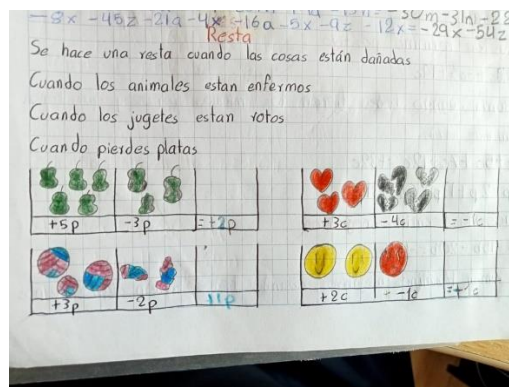 -8x -45z -21a -4x -16a -5x -9z -12x = -29x -54z
Resta
Se hace una resta cuando las cosas están dañadas
Cuando los animales estan enfermos
Cuando los jugetes estan rotos
Cuando pierdes platas
+5p -3p =+2p
+3c -4c
+3p -2p
+2c -1c